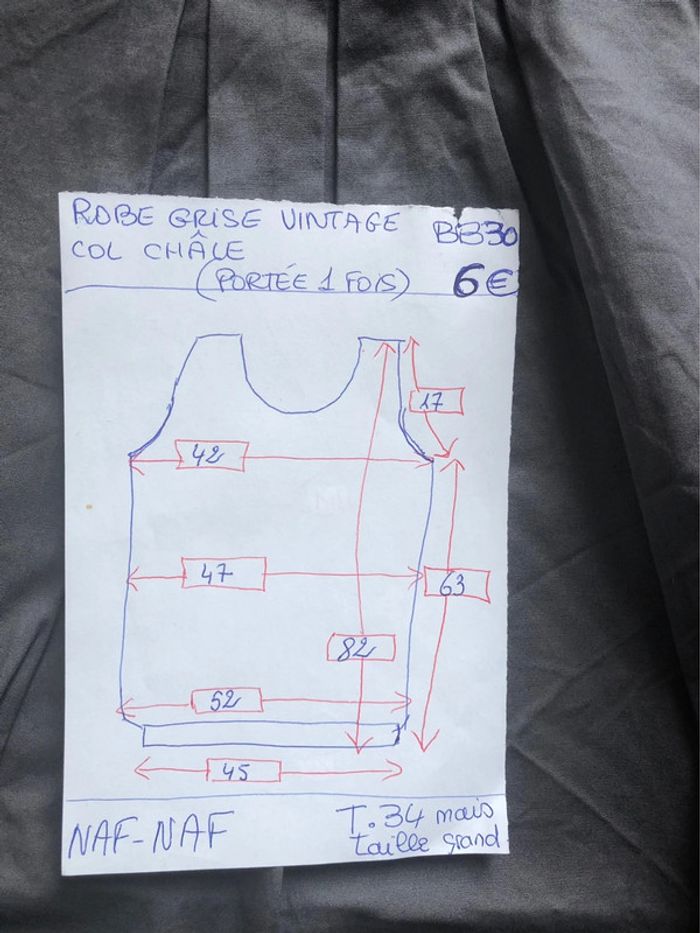 ROBE GRISE VINTAGE BB30
COL CHÂLE 6€
(PORTÉE 1 FOIS)
17
42
47
63
82
52
45
NAF-NAF T.34 mais
taille grand